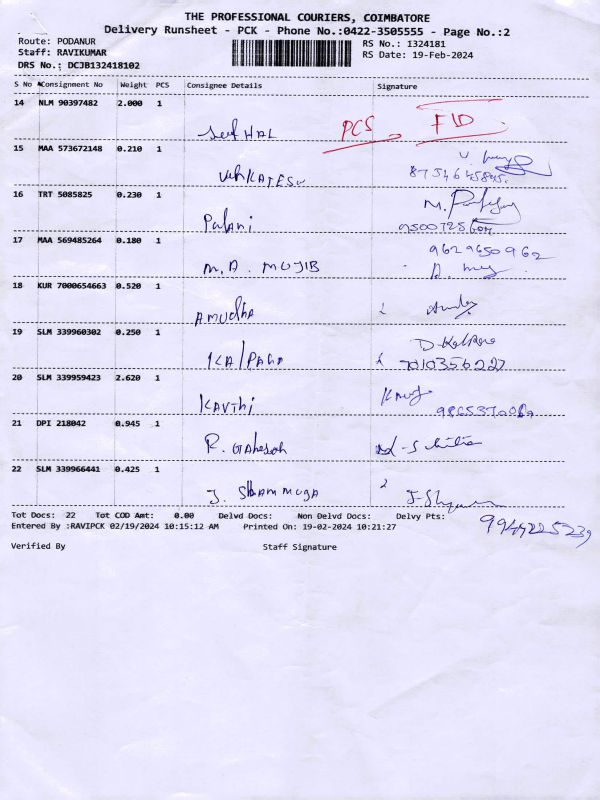 THE PROFESSIONAL COURIERS, COIMBATORE
Delivery Runsheet - PCK - Phone No.:0422-3505555 - Page No.:2
Route: PODANUR
RS No.: 1324181
Staff: RAVIKUMAR
RS Date: 19-Feb-2024
DRS No.: DCJB132418102
S No Consignment No Weight PCS Consignee Details Signature
14 NLM 90397482 2.000 1
HAL PCS FID
15 MAA 573672148 0.210 1
VENKATESU
16 TRT 5085825 0.230 1
Palani
17 MAA 569485264 0.180 1 9629650962
M.A. MUJIB
18 KUR 7000654663 0.520 1
AMUdhA
19 SLM 339960302 0.250 1
KAlPANA 7010356227
20 SLM 339959423 2.620 1
KAVThi
21 DPI 218042 0.945 1
R. GAhesah
22 SLM 339966441 0.425 1
J. ShAMMUGA
Tot Docs: 22 Tot COD Amt: 0.00 Delvd Docs: Non Delvd Docs: Delvy Pts:
Entered By :RAVIPCK 02/19/2024 10:15:12 AM Printed On: 19-02-2024 10:21:27
Verified By Staff Signature